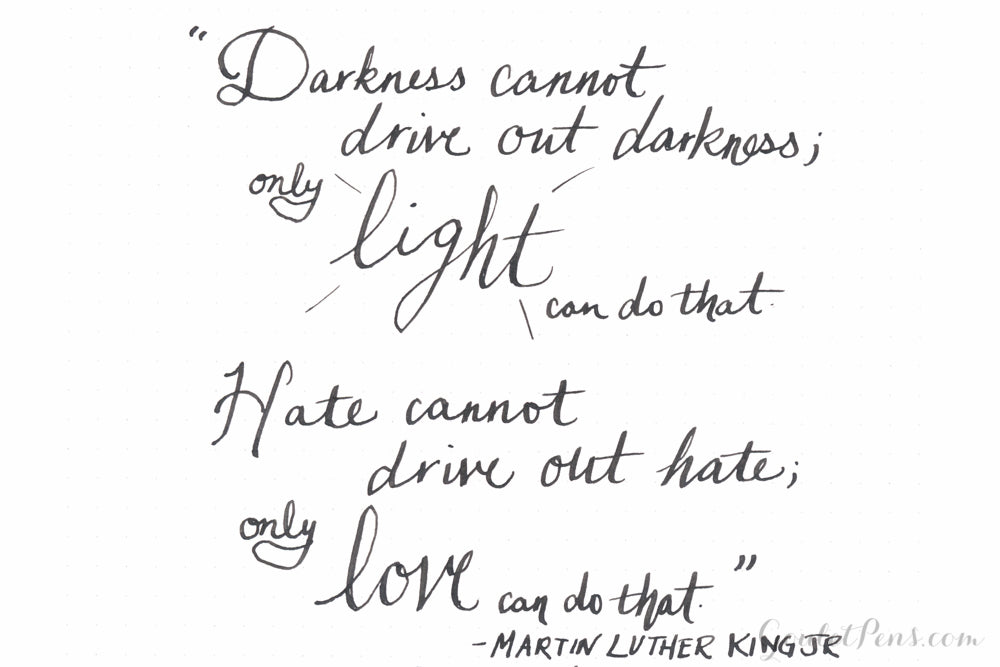 “Darkness cannot
drive out darkness;
only light
can do that.
Hate cannot
drive out hate;
only love can do that.”
-MARTIN LUTHER KING JR
GouletPens.com